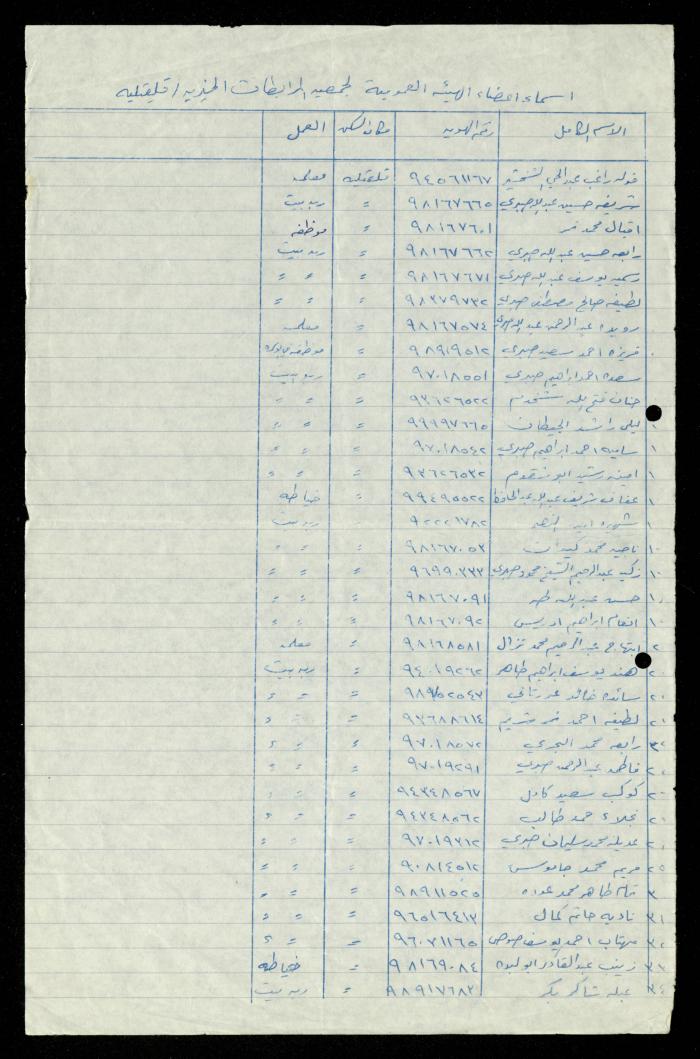 اسماء اعضاء الهيئه العمومية لجمعية المرابطات الخيريه / قلقيليه
الاسم الكامل رقم الهويه مكان السكن العمل
خوله راغب عبد الحي الشنتير ٩٤٥٦١١٦٧ قلقيليه معلمه
شريفه حسين عبد الله صبري ٩٨١٦٧٦٦٥ = ربه بيت
اقبال محمد نمر ٩٨١٦٧٦٠١ = موظفه
رابعه حسين عبد الله صبري ٩٨١٦٧٦٦٢ = ربه بيت
رسميه يوسف عبد الله صبري ٩٨١٦٧٦٧١ = = =
لطيفه صالح مصطفى صبري ٩٨٣٧٩٧٣٢ = = =
رويده عبد الرحمن عبد الله صبري ٩٨١٦٧٥٧٤ = معلمه
فريزه احمد سعيد صبري ٩٨٩١٩٥١٢ = موظفه
سعده احمد ابراهيم صبري ٩٧٠١٨٥٥١ = ربه بيت
حنان فتح الله ٩٣٦٢٦٥٢٢ = = =
١ ليلى راشد ٩٩٩٩٧٦٦٥ = = =
١ ساميه احمد ابراهيم صبري ٩٧٠١٨٥٤٢ = = =
١ امينه رشيد ٩٣٦٢٦٥٣٢ = = =
١ عفاف شريف عبد الله عبد الحافظ ٩٩٤٩٥٥٢٢ = خياطه
١ ٩٢٢٢١٧٨٢ = ربه بيت
١٠ ناجيه محمد ٩٨١٦٧٠٥٣ = = =
١٠ زكيه عبد الرحيم الشيخ محمود صبري ٩٦٩٩٠٣٣٣ = = =
١٠ حسن عبد الله طه ٩٨١٦٧٠٩١ = = =
١٠ انعام ابراهيم ادريس ٩٨١٦٧٠٩٢ = = =
٢ ابتهاج عبد الرحيم محمد نزال ٩٨١٦٨٥٨١ = معلمه
٢٠ هند يوسف ابراهيم طاهر ٩٤٠١٩٢٦٢ = ربه بيت
٢٠ سائده خالد ٩٨٩٧٥٢٥٤٣ = = =
٢٠ لطيفه احمد نمر ٩٣٦٨٨٦١٤ = = =
٣٢ رابعه محمد ٩٧٠١٨٥٧٢ = = =
٢٠ فاطمه عبد الرحمن صبري ٩٧٠١٩٢٩١ = = =
٢٠ كوكب سعيد كامل ٩٤٣٤٨٥٦٧ = = =
٢٠ نجلاء حمد طالب ٩٤٣٤٨٥٦٢ = = =
٢٠ عديله محمد سليمان صبري ٩٧٠١٩٣١٢ = = =
٢٩ مريم محمد جاموس ٩٠٨١٤٥١٢ = = =
٣ تمام طاهر محمد عوده ٩٨٩١١٥٢٥ = = =
٣١ ناديه حاتم كمال ٩٦٥١٦٤١٣ = = =
٣٢ مهتاب احمد يوسف ٩٦٠٧١١٦٥ = = =
٣٣ زينب عبد القادر ابو لبده ٩٨١٦٩٠٨٤ = خياطه
٣٤ عبله شاكر بكر ٩٨٩١٧٦٨٢ = ربه بيت